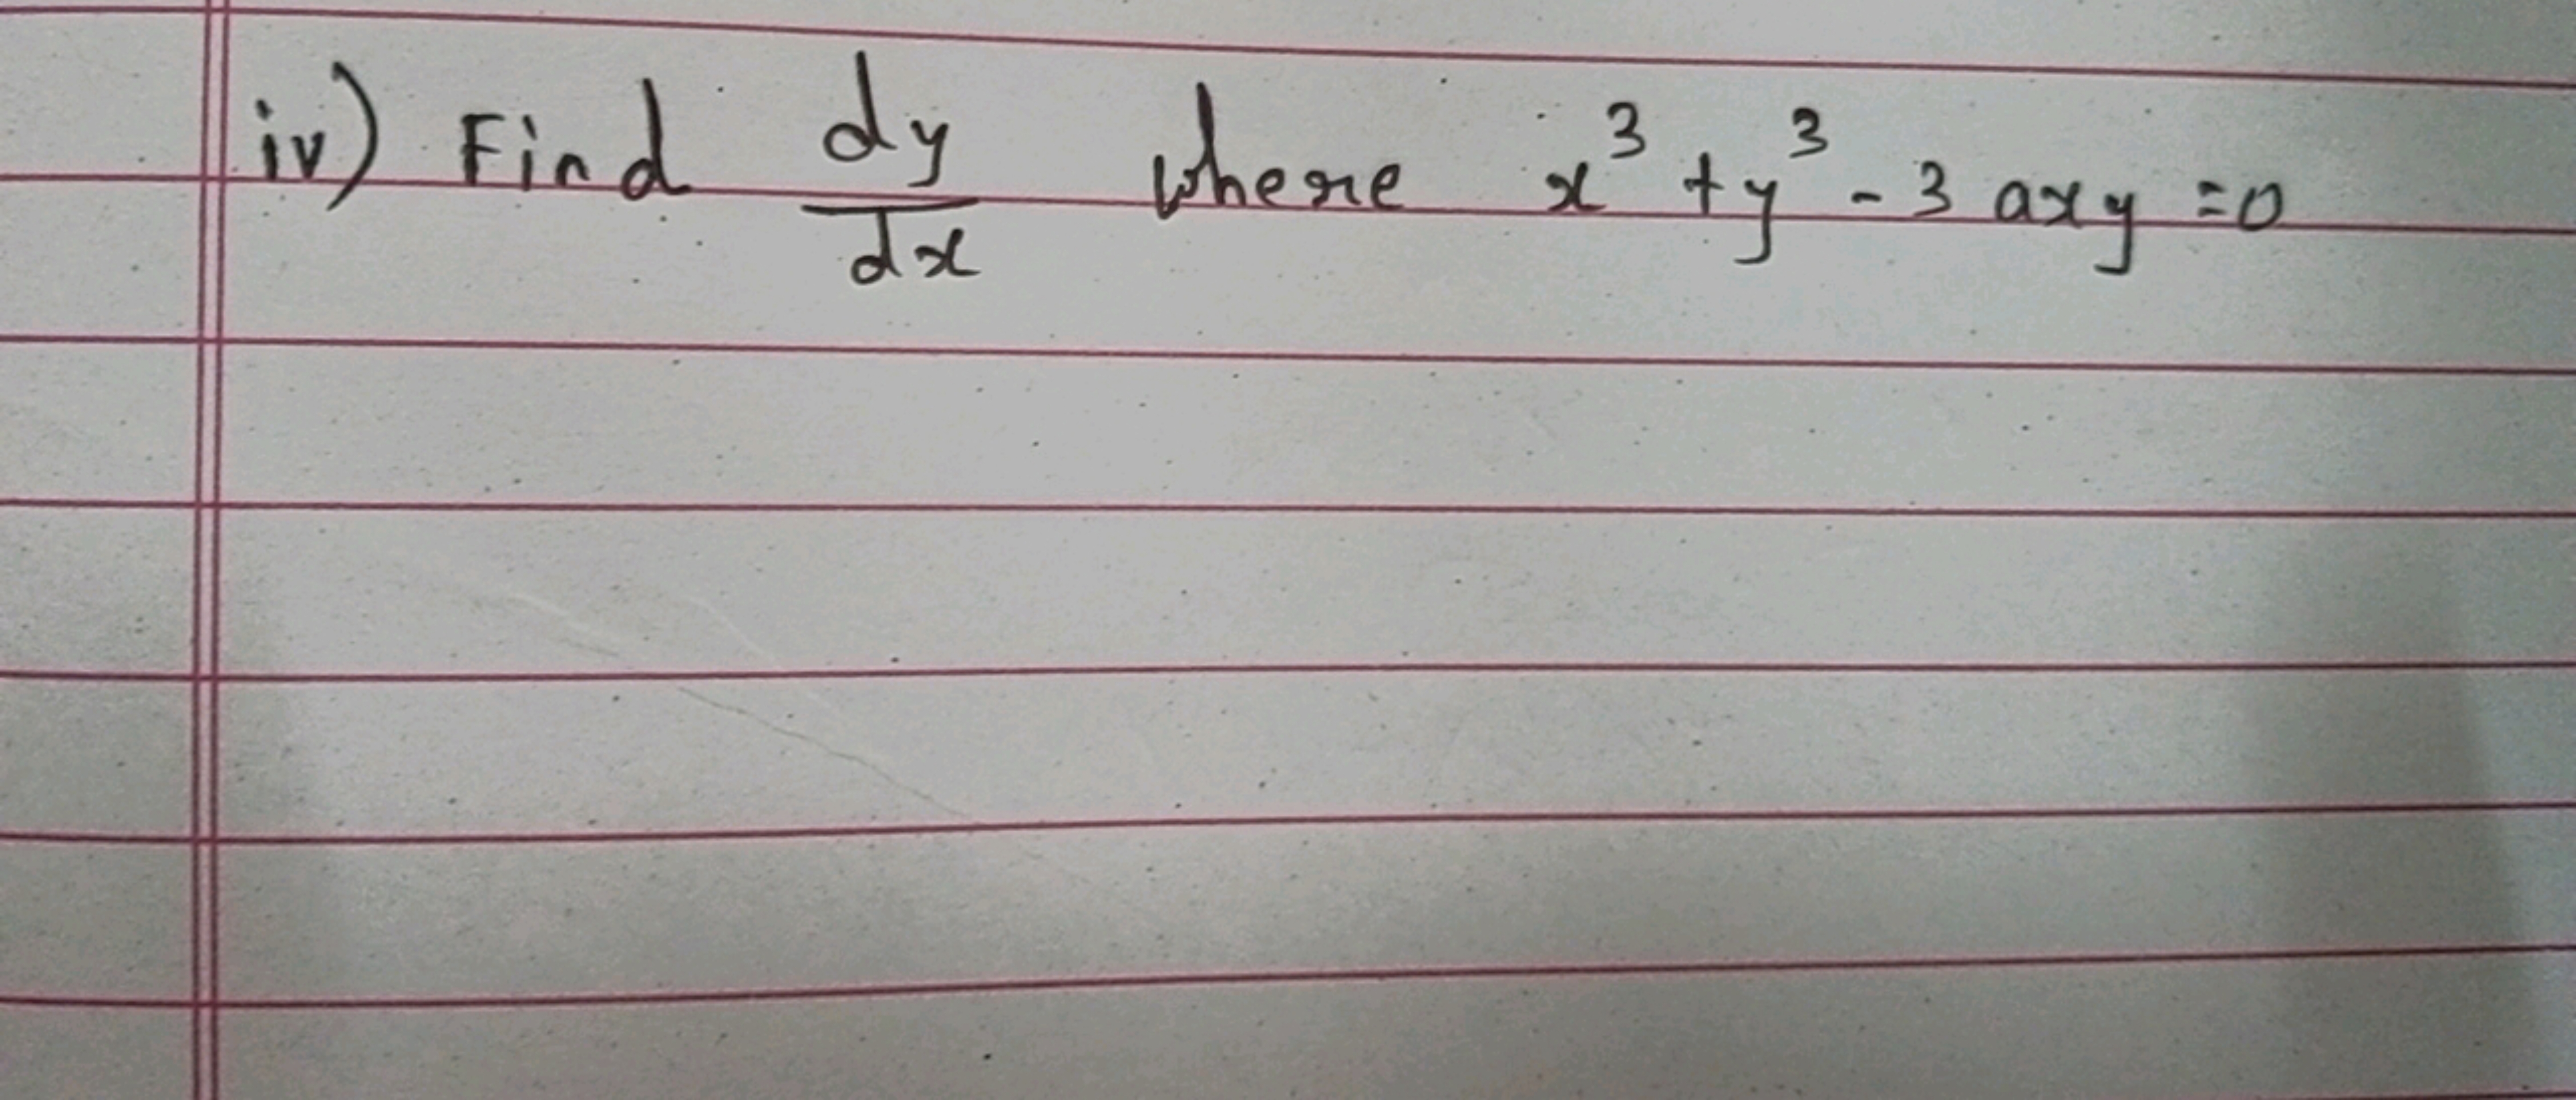 iv) Find dy/dx where x³ + y³ - 3 axy = 0